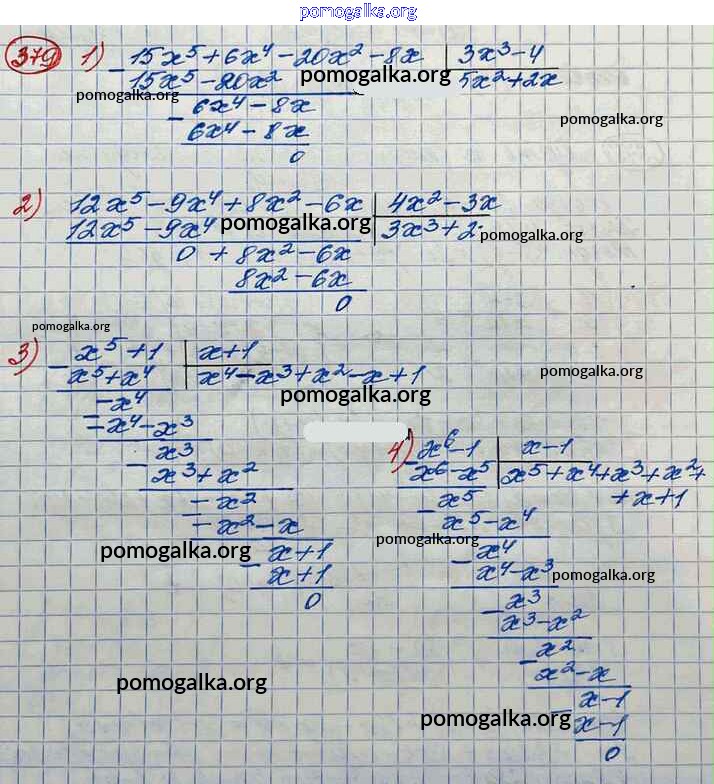 pomogalka.org
379 1) - 15x⁵ + 6x⁴ - 20x² - 8x | 3x³ - 4
15x⁵ - 20x² pomogalka.org 5x² + 2x
pomogalka.org
- 6x⁴ - 8x
pomogalka.org
6x⁴ - 8x
0
2) 12x⁵ - 9x⁴ + 8x² - 6x | 4x² - 3x
12x⁵ - 9x⁴ pomogalka.org 3x³ + 2
pomogalka.org
0 + 8x² - 6x
8x² - 6x
0
pomogalka.org
3) - x⁵ + 1 | x + 1
x⁵ + x⁴ x⁴ - x³ + x² - x + 1
pomogalka.org
- x⁴
pomogalka.org
- x⁴ - x³
x³
- x³ + x²
- x²
- x² - x
pomogalka.org
- x + 1
x + 1
0
4) - x⁶ - 1 | x - 1
x⁶ - x⁵ x⁵ + x⁴ + x³ + x² +
+ x + 1
- x⁵
x⁵ - x⁴
pomogalka.org
- x⁴
x⁴ - x³
pomogalka.org
- x³
x³ - x²
- x²
x² - x
- x - 1
x - 1
0
pomogalka.org
pomogalka.org